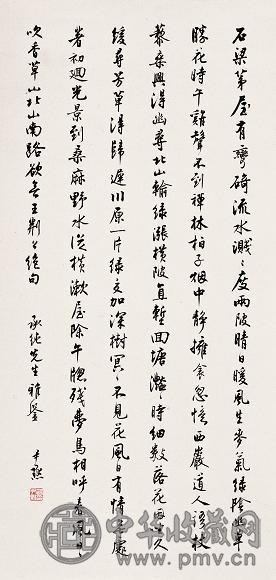 石梁茅屋有彎碕流水濺〻度兩陂晴日暖風生麥氣綠陰幽草
勝花時午雞聲不到禪林柏子煙中靜擁衾忽憶西巖道人語杖
藜乘興得幽尋北山輸綠漲橫陂直塹回塘灩〻時細數落花因坐久
緩尋芳草得歸遲川原一片綠交加深樹冥〻不見花風日有情無處
著初迴光景到桑麻野水從橫漱屋除午牕殘夢鳥相呼春風日〻
吹香草山北山南路欲無王荊公絕句
承純先生雅鑒
尹默
中华收藏网